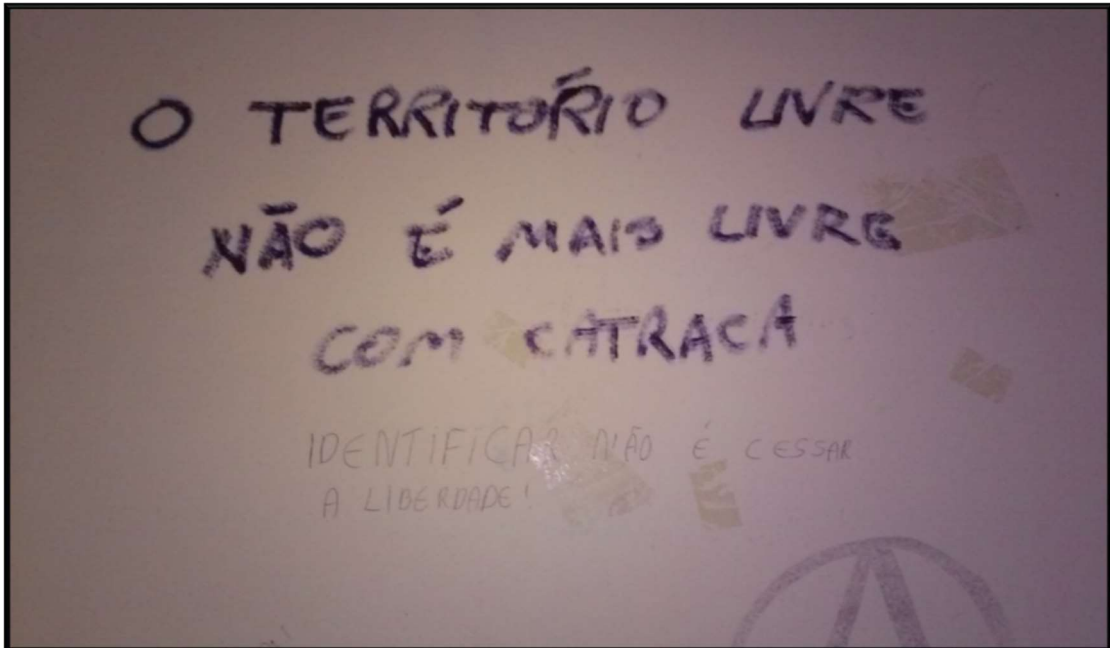 O TERRITÓRIO LIVRE
NÃO É MAIS LIVRE
COM CATRACA
IDENTIFICAR NÃO É CESSAR
A LIBERDADE!